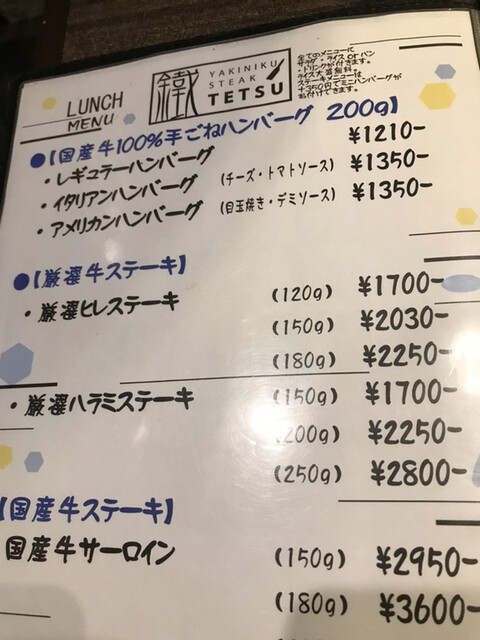 LUNCH
MENU
鐵
YAKINIKU
STEAK
TETSU
全てのメニューに
サラダ・ライス or パン
・ドリンクが付きます。
ライス大盛無料。
ステーキメニューは
+350円でミニハンバーグが
お付けできます。
●【国産牛100%手ごねハンバーグ 200g】
・レギュラーハンバーグ ¥1210-
・イタリアンハンバーグ (チーズ・トマトソース) ¥1350-
・アメリカンハンバーグ (目玉焼き・デミソース) ¥1350-
●【厳選牛ステーキ】
・厳選ヒレステーキ (120g) ¥1700-
(150g) ¥2030-
(180g) ¥2250-
・厳選ハラミステーキ (150g) ¥1700-
(200g) ¥2250-
(250g) ¥2800-
【国産牛ステーキ】
国産牛サーロイン (150g) ¥2950-
(180g) ¥3600-